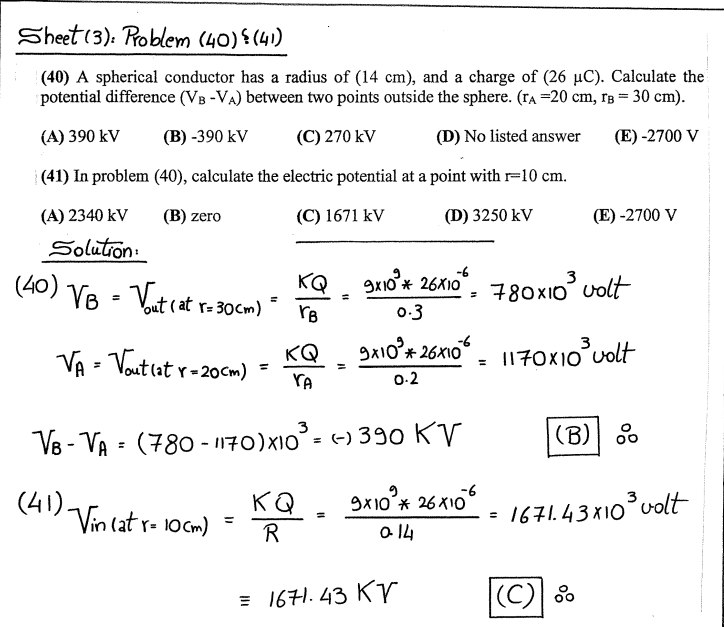 Sheet(3): Problem (40) & (41)
(40) A spherical conductor has a radius of (14 cm), and a charge of (26 μC). Calculate the
potential difference (V_B -V_A) between two points outside the sphere. (r_A =20 cm, r_B = 30 cm).
(A) 390 kV (B) -390 kV (C) 270 kV (D) No listed answer (E) -2700 V
(41) In problem (40), calculate the electric potential at a point with r=10 cm.
(A) 2340 kV (B) zero (C) 1671 kV (D) 3250 kV (E) -2700 V
Solution:
(40) V_B = V_out (at r=30cm) = KQ/r_B = 9x10^9 * 26x10^-6 / 0.3 = 780x10^3 volt
V_A = V_out (at r=20cm) = KQ/r_A = 9x10^9 * 26x10^-6 / 0.2 = 1170x10^3 volt
V_B - V_A = (780 - 1170)x10^3 = (-) 390 KV (B)
(41) V_in (at r= 10cm) = KQ/R = 9x10^9 * 26x10^-6 / 0.14 = 1671.43x10^3 volt
≡ 1671.43 KV (C)